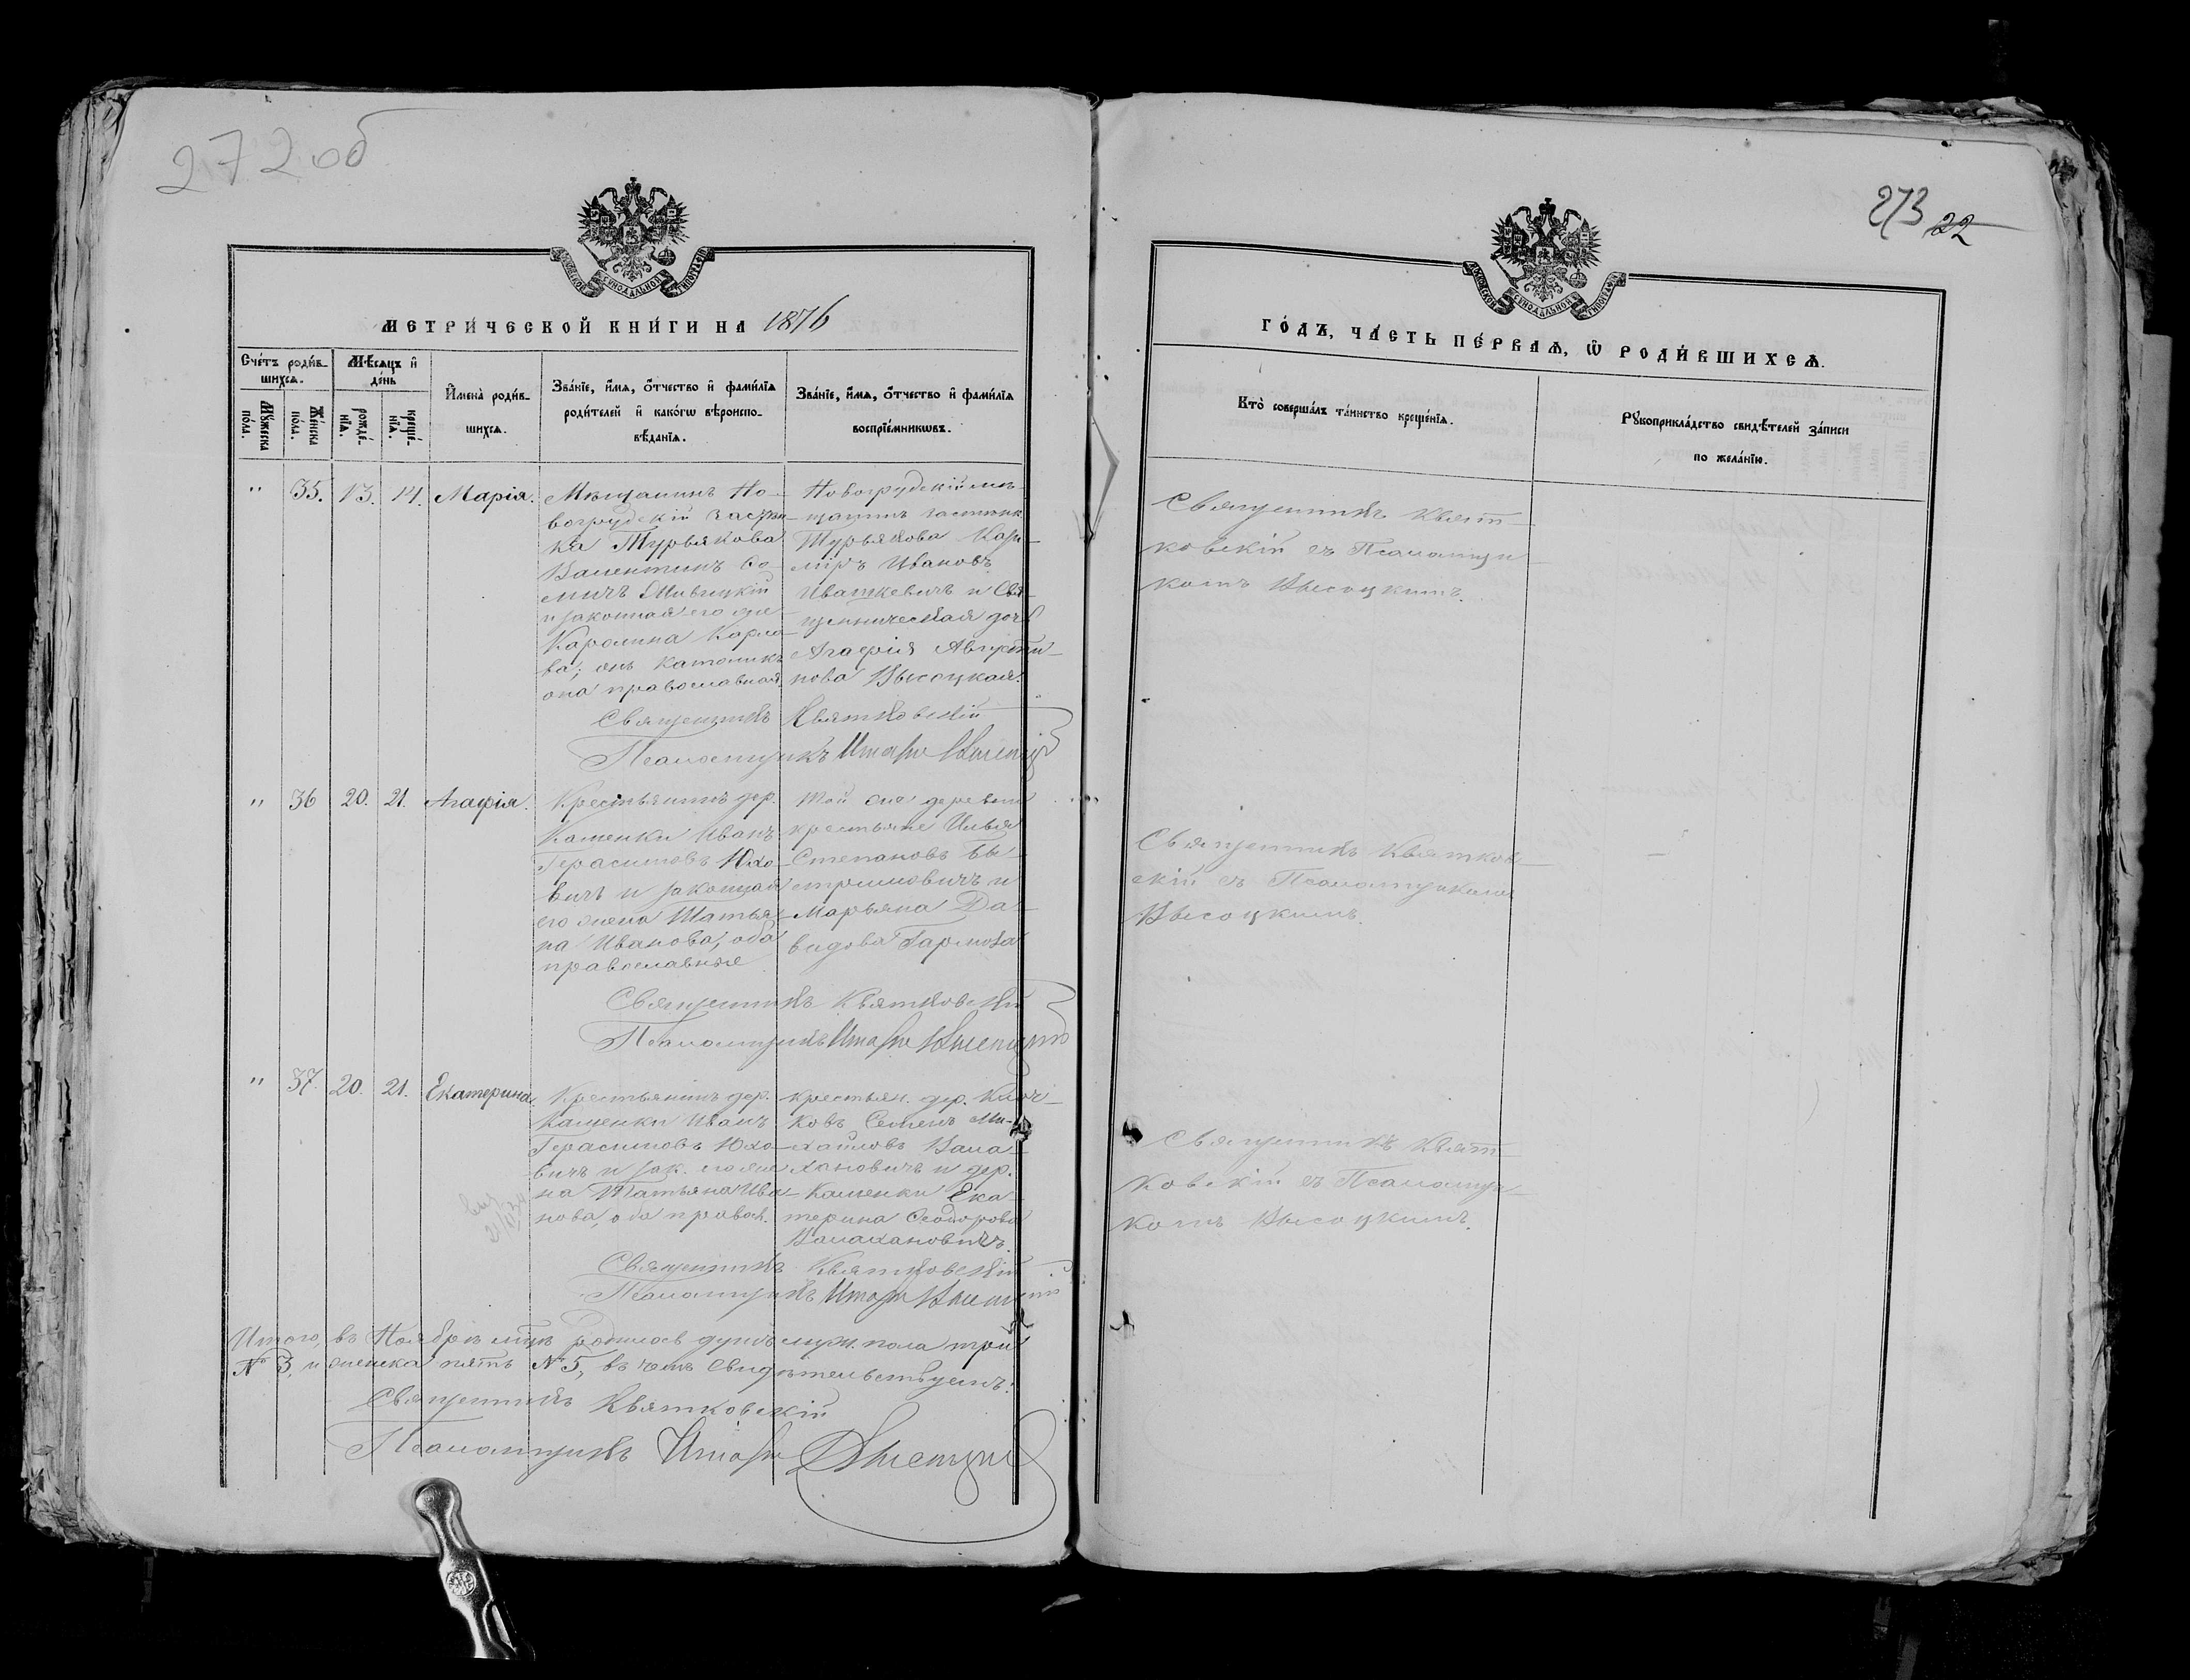 272 об
МОСКОВСКОЙ СѴНОДАЛЬНОЙ ТИПОГРАФІИ
МЕТРИ́ЧЕСКОЙ КНИ́ГИ НА 1876
Сче́тъ роди́в-
шихсѧ.
Мꙋ́жеска по́ла.
Же́нска по́ла.
Мѣ́сѧцъ и҆ де́нь
рожде́-нїѧ.
креще́-нїѧ.
И҆мена̀ роди́в-
шихсѧ.
Зва́нїе, и҆́мѧ, ѻ҆́тчество и҆ фами́лїѧ
роди́телей и҆ како́гѡ вѣроиспо-
вѣ́данїѧ.
Зва́нїе, и҆́мѧ, ѻ҆́тчество и҆ фами́лїѧ
воспрїе́мникѡвъ.
" 35. 13. 14. Марія.
Мѣщанинъ Но-
вогрудскій застѣн-
ка Турьякова
Валентинъ Ѳо-
мичъ
и законная его же-
Каролина Карло-
ва; онъ католикъ
она православная.
Новогрудскій мѣ-
щанинъ застѣнк.
Турьякова Кази-
міръ Ивановъ
Ивашкевичъ и Свя-
щенническая дочь
Агафія Августи-
нова Высоцкая.
Священникъ Квятковскій
Псаломщикъ
" 36 20. 21. Агафія.
Крестьянинъ дер.
Каменки Иванъ
Герасимовъ Юхо-
вичъ и законная
его жена Татья-
на Иванова, оба
православные
Той же деревни
крестьяне Илья
Степановъ Бы-
стримовичъ и
Марьяна Да-
видова
Священникъ Квятковскій
Псаломщикъ
" 37. 20. 21. Екатерина.
Крестьянинъ дер.
Каменки Иванъ
Герасимовъ Юхо-
вичъ и зак. его же
на Татьяна Ива-
нова, оба правосл.
крестьян. дер. Клоч-
ковъ Семенъ Ми-
хайловъ Вала-
хановичъ и дер.
Каменки Ека-
терина Ѳеодорова
Валахановичъ.
Священникъ Квятковскій
Псаломщикъ
Итого, въ Ноябрѣ мцѣ родилось душъ муж. пола три
№ 3, и женска пять № 5, въ чемъ свидѣтельствуемъ:
Священникъ Квятковскій
Псаломщикъ
273 22
МОСКОВСКОЙ СѴНОДАЛЬНОЙ ТИПОГРАФІИ
ГО́ДЪ, ЧА́СТЬ ПЕ́РВАѦ, Ѽ РОДИ́ВШИХСѦ.
Кто̀ соверша́лъ та́инство креще́нїѧ.
Рꙋкоприкла́дство свидѣ́телей за́писи
по жела́нїю.
Священникъ Квят-
ковскій съ Псаломщи-
комъ Высоцкимъ.
Священникъ Квятков-
скій съ Псаломщикомъ
Высоцкимъ.
Священникъ Квят-
ковскій съ Псаломщи-
комъ Высоцкимъ.